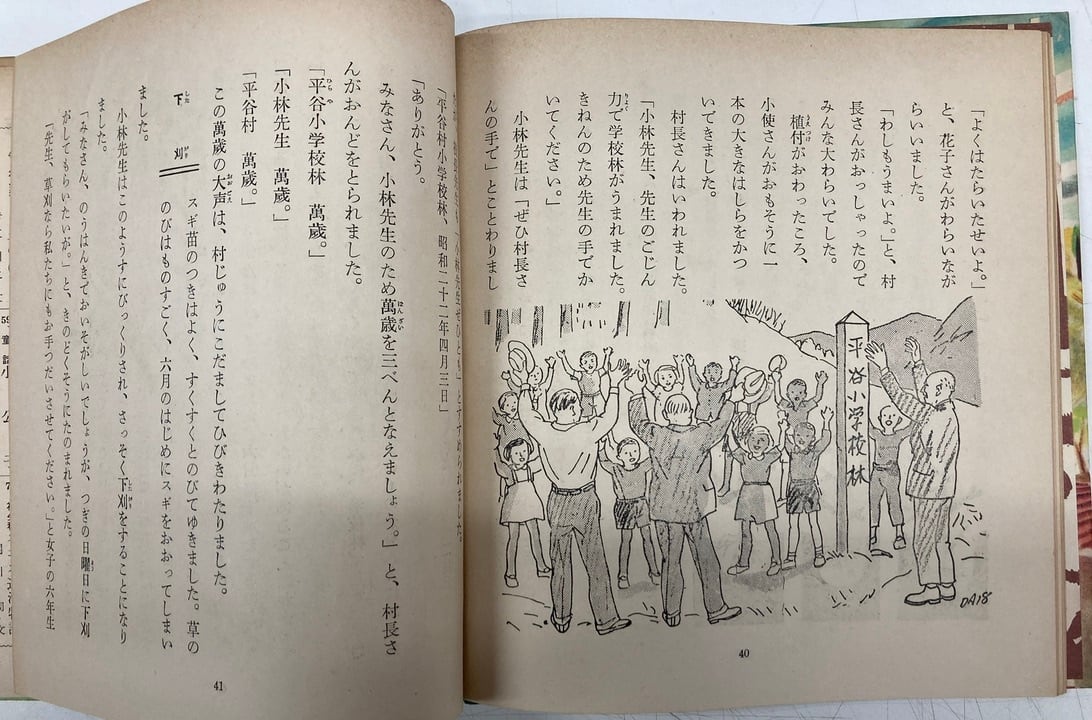 「よくはたらいたせいよ。」
と、花子さんがわらいなが
らいいました。
「わしもうまいよ。」と、村
長さんがおっしゃったので
みんな大わらいでした。
植付がおわったころ、
小使さんがおもそうに一
本の大きなはしらをかつ
いできました。
村長さんはいわれました。
「小林先生、先生のごじん
力で学校林がうまれました。
きねんのため先生の手でか
いてください。」
小林先生は「ぜひ村長さ
んの手で」とことわりまし
平谷小学校林
DA18
40
「平谷村小学校林、昭和二十二年四月三日」
「ありがとう。
みなさん、小林先生のため萬歳を三べんとなえましょう。」と、村長さ
んがおんどをとられました。
「平谷小学校林 萬歳。」
「小林先生 萬歳。」
「平谷村 萬歳。」
この萬歳の大声は、村じゅうにこだましてひびきわたりました。
下刈
スギ苗のつきはよく、すくすくとのびてゆきました。草の
のびはものすごく、六月のはじめにスギをおおってしまい
ました。
小林先生はこのようすにびっくりされ、さっそく下刈をすることになり
ました。
「みなさん、のうはんきでおいそがしいでしょうが、つぎの日曜日に下刈
がしてもらいたいが。」と、きのどくそうにたのまれました。
「先生、草刈なら私たちにもお手つだいさせてください。」と女子の六年生
41